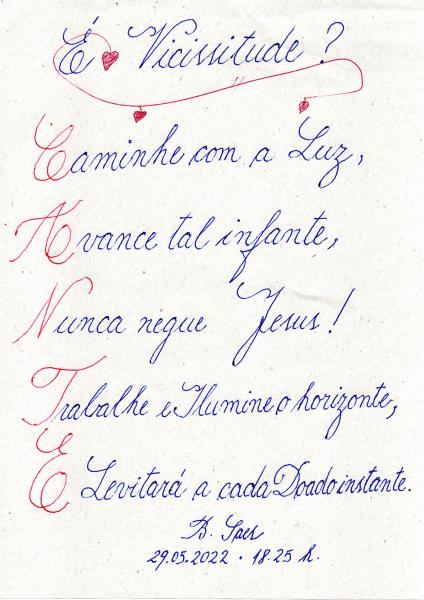 É Vicissitude ?
Caminhe com a Luz,
Avance tal infante,
Nunca negue Jesus !
Trabalhe e Ilumine o horizonte,
E Levitará a cada Doado instante.
B. Saes
29.05.2022 · 18.25 h.